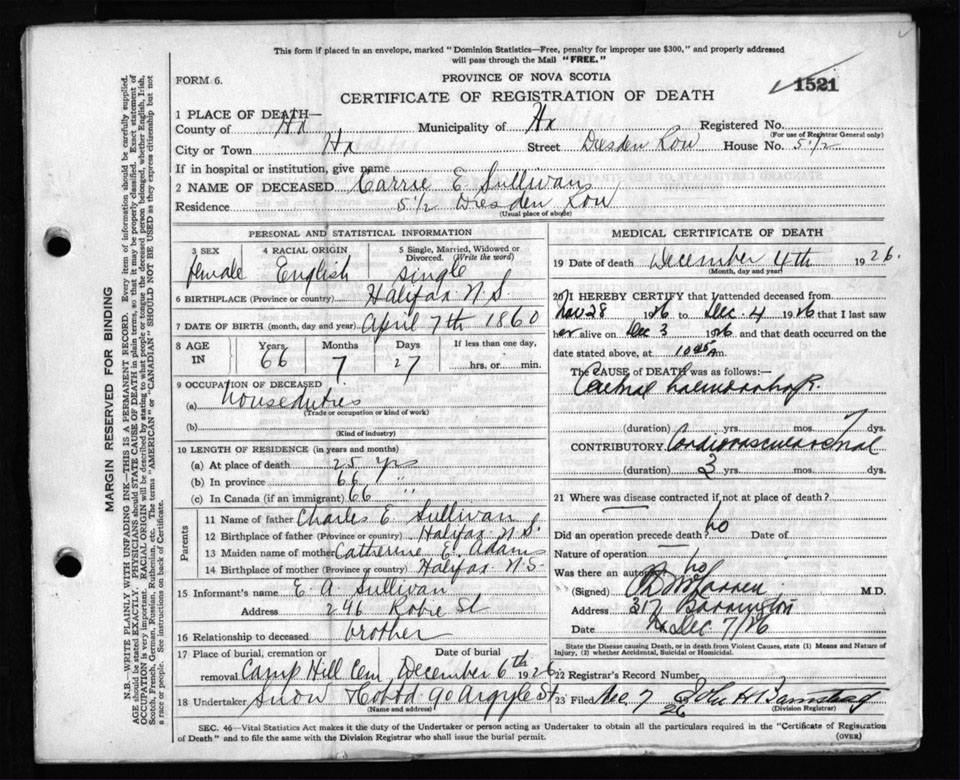 This form if placed in an envelope, marked "Dominion Statistics—Free, penalty for improper use $300," and properly addressed
will pass through the Mail "FREE."
FORM 6.
PROVINCE OF NOVA SCOTIA
1521
CERTIFICATE OF REGISTRATION OF DEATH
1 PLACE OF DEATH—
County of Hx Municipality of Hx Registered No.
(For use of Registrar General only)
City or Town Hx Street Dresden Row House No. 5 1/2
If in hospital or institution, give name
2 NAME OF DECEASED Carrie E. Sullivan
Residence 5 1/2 Dresden Row
(Usual place of abode)
PERSONAL AND STATISTICAL INFORMATION
3 SEX 4 RACIAL ORIGIN 5 Single, Married, Widowed or
Divorced. (Write the word)
female English single
6 BIRTHPLACE (Province or country) Halifax N.S.
7 DATE OF BIRTH (month, day and year) April 7th 1860
8 AGE IN Years Months Days If less than one day,
66 7 27 hrs. or min.
9 OCCUPATION OF DECEASED
(a) Houseduties
(Trade or occupation or kind of work)
(b)
(Kind of industry)
10 LENGTH OF RESIDENCE (in years and months)
(a) At place of death 25 yrs
(b) In province 66 "
(c) In Canada (if an immigrant) 66 "
Parents
11 Name of father Charles E Sullivan
12 Birthplace of father (Province or country) Halifax N.S.
13 Maiden name of mother Catherine E. Adams
14 Birthplace of mother (Province or country) Halifax N.S.
15 Informant's name E. A. Sullivan
Address 246 Robie St
16 Relationship to deceased brother
17 Place of burial, cremation or Date of burial
removal Camp Hill Cem, December 6th 1926
18 Undertaker Snow 90 Argyle St
(Name and address)
MEDICAL CERTIFICATE OF DEATH
19 Date of death December 4th 1926.
(Month, day and year)
20 I HEREBY CERTIFY that I attended deceased from
Nov 28 1926 to Dec. 4 1926 that I last saw
her alive on Dec 3 1926 and that death occurred on the
date stated above, at m.
The CAUSE of DEATH was as follows:—
haemorrhage.
(duration) yrs. mos. 7 dys.
CONTRIBUTORY Cardiovascularrenal
(duration) 3 yrs. mos. dys.
21 Where was disease contracted if not at place of death?
Did an operation precede death? no Date of
Nature of operation
Was there an autopsy? no
(Signed) M.D.
Address 317 Barrington
Date Hx Dec 7/26
State the Disease causing Death, or in death from Violent Causes, state (1) Means and Nature of
Injury, (2) whether Accidental, Suicidal or Homicidal.
22 Registrar's Record Number
23 Filed Dec 7 26 John H
(Division Registrar)
SEC. 46—Vital Statistics Act makes it the duty of the Undertaker or person acting as Undertaker to obtain all the particulars required in the "Certificate of Registration
of Death" and to file the same with the Division Registrar who shall issue the burial permit.
(OVER)
MARGIN RESERVED FOR BINDING
N.B.—WRITE PLAINLY WITH UNFADING INK—THIS IS A PERMANENT RECORD. Every item of information should be carefully supplied.
AGE should be stated EXACTLY. PHYSICIANS should STATE CAUSE OF DEATH in plain terms, so that it may be properly classified. Exact statement of
OCCUPATION is very important. RACIAL ORIGIN will be described by stating to what people or tongue the deceased person belonged, whether English, Irish,
Scotch, French, German, Russian, Ruthenian, etc. The terms "AMERICAN" or "CANADIAN" SHOULD NOT BE USED as they express citizenship but not
a race or people. See instructions on back of Certificate.